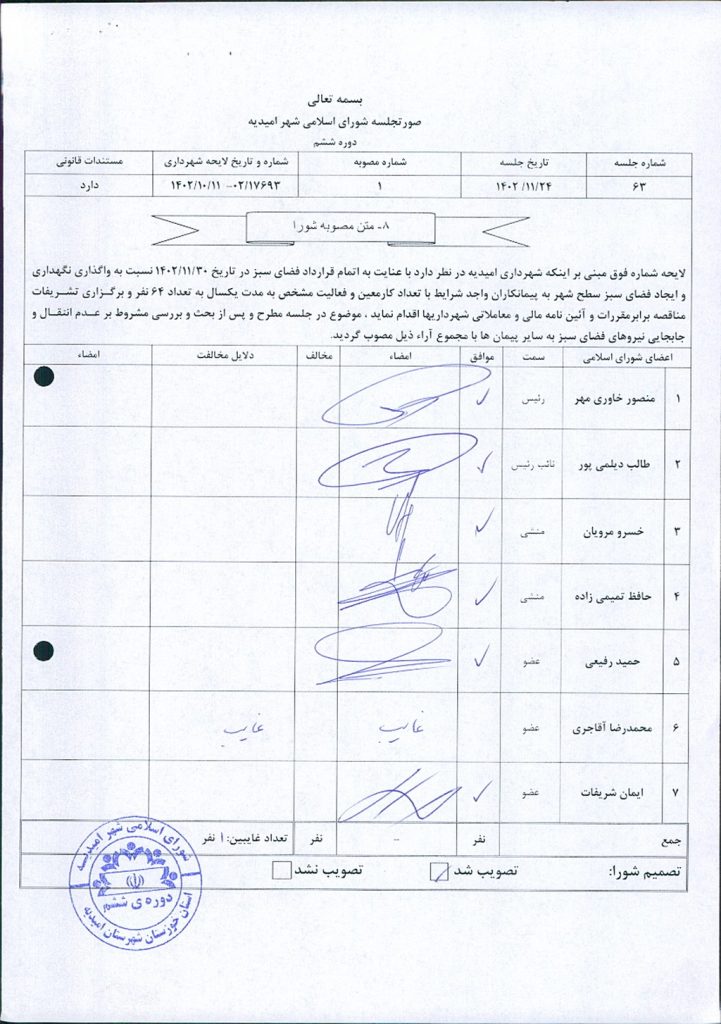 بسمه تعالی
صورتجلسه شورای اسلامی شهر امیدیه
دوره ششم
شماره جلسه تاریخ جلسه شماره مصوبه شماره و تاریخ لایحه شهرداری مستندات قانونی
۶۳ ۱۴۰۲/۱۱/۲۴ ۱ ۰۲/۱۷۶۹۳-- ۱۴۰۲/۱۰/۱۱ دارد
۸- متن مصوبه شورا
لایحه شماره فوق مبنی بر اینکه شهرداری امیدیه در نظر دارد با عنایت به اتمام قرارداد فضای سبز در تاریخ ۱۴۰۲/۱۱/۳۰ نسبت به واگذاری نگهداری
و ایجاد فضای سبز سطح شهر به پیمانکاران واجد شرایط با تعداد کارمعین و فعالیت مشخص به مدت یکسال به تعداد ۶۴ نفر و برگزاری تشریفات
مناقصه برابرمقررات و آئین نامه مالی و معاملاتی شهرداریها اقدام نماید ، موضوع در جلسه مطرح و پس از بحث و بررسی مشروط بر عدم انتقال و
جابجایی نیروهای فضای سبز به سایر پیمان ها با مجموع آراء ذیل مصوب گردید.
اعضای شورای اسلامی سمت موافق امضاء مخالف دلایل مخالفت امضاء
۱ منصور خاوری مهر رئیس
۲ طالب دیلمی پور نائب رئیس
۳ خسرو مرویان منشی
۴ حافظ تمیمی زاده منشی
۵ حمید رفیعی عضو
۶ محمدرضا آقاجری عضو غایب غایب
۷ ایمان شریفات عضو
جمع نفر -- نفر تعداد غایبین: ۱ نفر
تصمیم شورا: تصویب شد تصویب نشد
شورای اسلامی شهر امیدیه
دوره ی ششم
استان خوزستان شهرستان امیدیه